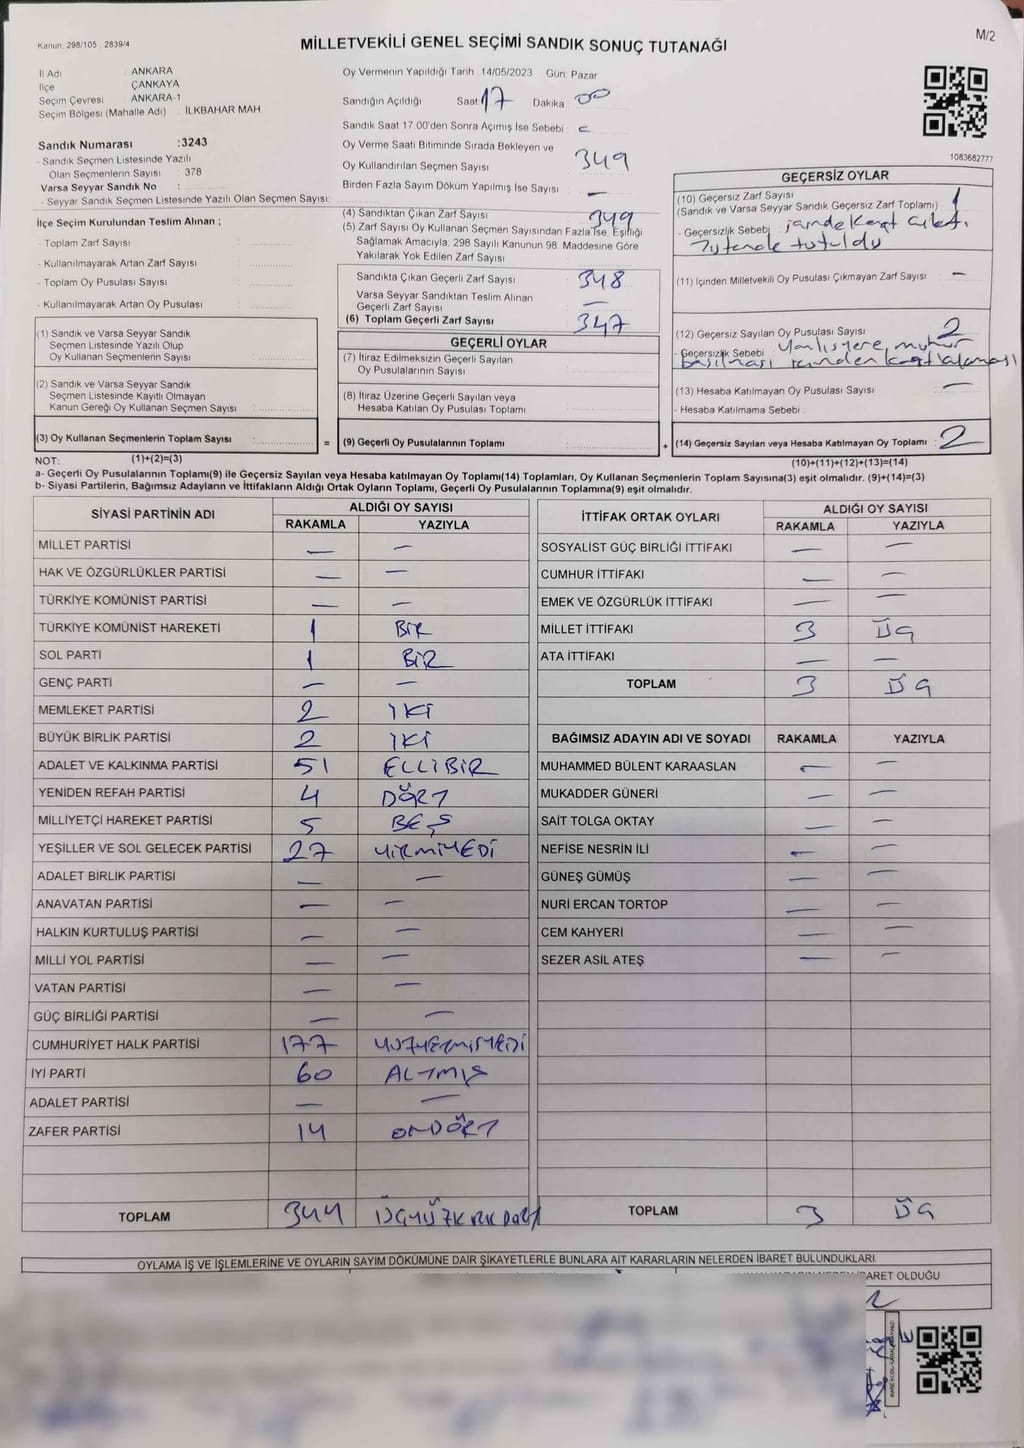 M/2
Kanun: 298/105 , 2839/4
MİLLETVEKİLİ GENEL SEÇİMİ SANDIK SONUÇ TUTANAĞI
İl Adı : ANKARA
İlçe : ÇANKAYA
Seçim Çevresi : ANKARA-1
Seçim Bölgesi (Mahalle Adı) : İLKBAHAR MAH.
Sandık Numarası :3243
- Sandık Seçmen Listesinde Yazılı
Olan Seçmenlerin Sayısı : 378
Varsa Seyyar Sandık No :
- Seyyar Sandık Seçmen Listesinde Yazılı Olan Seçmen Sayısı:
İlçe Seçim Kurulundan Teslim Alınan ;
- Toplam Zarf Sayısı :
- Kullanılmayarak Artan Zarf Sayısı :
- Toplam Oy Pusulası :
- Kullanılmayarak Artan Oy Pusulası :
(1) Sandık ve Varsa Seyyar Sandık
Seçmen Listesinde Yazılı Olup
Oy Kullanan Seçmenlerin Sayısı :
(2) Sandık ve Varsa Seyyar Sandık
Seçmen Listesinde Kayıtlı Olmayan
Kanun Gereği Oy Kullanan Seçmen Sayısı :
(3) Oy Kullanan Seçmenlerin Toplam Sayısı :
(1)+(2)=(3)
Oy Vermenin Yapıldığı Tarih : 14/05/2023 Gün: Pazar
Sandığın Açıldığı Saat 17 Dakika 00
Sandık Saat 17:00'den Sonra Açımış İse Sebebi :
Oy Verme Saati Bitiminde Sırada Bekleyen ve
Oy Kullandırılan Seçmen Sayısı : 349
Birden Fazla Sayım Döküm Yapılmış İse Sayısı : —
(4) Sandıktan Çıkan Zarf Sayısı : 349
(5) Zarf Sayısı Oy Kullanan Seçmen Sayısından Fazla İse, Eşitliği
Sağlamak Amacıyla; 298 Sayılı Kanunun 98. Maddesine Göre
Yakılarak Yok Edilen Zarf Sayısı :
Sandıkta Çıkan Geçerli Zarf Sayısı : 348
Varsa Seyyar Sandıktan Teslim Alınan
Geçerli Zarf Sayısı : —
(6) Toplam Geçerli Zarf Sayısı : 347
GEÇERLİ OYLAR
(7) İtiraz Edilmeksizin Geçerli Sayılan
Oy Pusulalarının Sayısı :
(8) İtiraz Üzerine Geçerli Sayılan veya
Hesaba Katılan Oy Pusulası Toplamı :
= (9) Geçerli Oy Pusulalarının Toplamı :
1083682777
GEÇERSİZ OYLAR
(10) Geçersiz Zarf Sayısı : 1
(Sandık ve Varsa Seyyar Sandık Geçersiz Zarf Toplamı)
- Geçersizlik Sebebi
tutuldu
(11) İçinden Milletvekili Oy Pusulası Çıkmayan Zarf Sayısı : —
(12) Geçersiz Sayılan Oy Pusulası Sayısı : 2
- Geçersizlik Sebebi : Yanlış yere mühür
basılması
(13) Hesaba Katılmayan Oy Pusulası Sayısı : —
- Hesaba Katılmama Sebebi :
+ (14) Geçersiz Sayılan veya Hesaba Katılmayan Oy Toplamı : 2
(10)+(11)+(12)+(13)=(14)
NOT:
a- Geçerli Oy Pusulalarının Toplamı(9) ile Geçersiz Sayılan veya Hesaba katılmayan Oy Toplamı(14) Toplamları, Oy Kullanan Seçmenlerin Toplam Sayısına(3) eşit olmalıdır. (9)+(14)=(3)
b- Siyasi Partilerin, Bağımsız Adayların ve İttifakların Aldığı Ortak Oyların Toplamı, Geçerli Oy Pusulalarının Toplamına(9) eşit olmalıdır.
SİYASİ PARTİNİN ADI ALDIĞI OY SAYISI
RAKAMLA YAZIYLA
MİLLET PARTİSİ — —
HAK VE ÖZGÜRLÜKLER PARTİSİ — —
TÜRKİYE KOMÜNİST PARTİSİ — —
TÜRKİYE KOMÜNİST HAREKETİ 1 BİR
SOL PARTİ 1 BİR
GENÇ PARTİ — —
MEMLEKET PARTİSİ 2 İKİ
BÜYÜK BİRLİK PARTİSİ 2 İKİ
ADALET VE KALKINMA PARTİSİ 51 ELLİBİR
YENİDEN REFAH PARTİSİ 4 DÖRT
MİLLİYETÇİ HAREKET PARTİSİ 5 BEŞ
YEŞİLLER VE SOL GELECEK PARTİSİ 27 YİRMİYEDİ
ADALET BİRLİK PARTİSİ — —
ANAVATAN PARTİSİ — —
HALKIN KURTULUŞ PARTİSİ — —
MİLLİ YOL PARTİSİ — —
VATAN PARTİSİ — —
GÜÇ BİRLİĞİ PARTİSİ — —
CUMHURİYET HALK PARTİSİ 177 YÜZYETMİŞYEDİ
İYİ PARTİ 60 ALTMIŞ
ADALET PARTİSİ — —
ZAFER PARTİSİ 14 ONDÖRT
TOPLAM 344 ÜÇYÜZKIRKDÖRT
İTTİFAK ORTAK OYLARI ALDIĞI OY SAYISI
RAKAMLA YAZIYLA
SOSYALİST GÜÇ BİRLİĞİ İTTİFAKI — —
CUMHUR İTTİFAKI — —
EMEK VE ÖZGÜRLÜK İTTİFAKI — —
MİLLET İTTİFAKI 3 ÜÇ
ATA İTTİFAKI — —
TOPLAM 3 ÜÇ
BAĞIMSIZ ADAYIN ADI VE SOYADI RAKAMLA YAZIYLA
MUHAMMED BÜLENT KARAASLAN — —
MUKADDER GÜNERİ — —
SAİT TOLGA OKTAY — —
NEFİSE NESRİN İLİ — —
GÜNEŞ GÜMÜŞ — —
NURİ ERCAN TORTOP — —
CEM KAHYERİ — —
SEZER ASIL ATEŞ — —
TOPLAM 3 ÜÇ
OYLAMA İŞ VE İŞLEMLERİNE VE OYLARIN SAYIM DÖKÜMÜNE DAİR ŞİKAYETLERLE BUNLARA AİT KARARLARIN NELERDEN İBARET BULUNDUKLARI
İBARET OLDUĞU